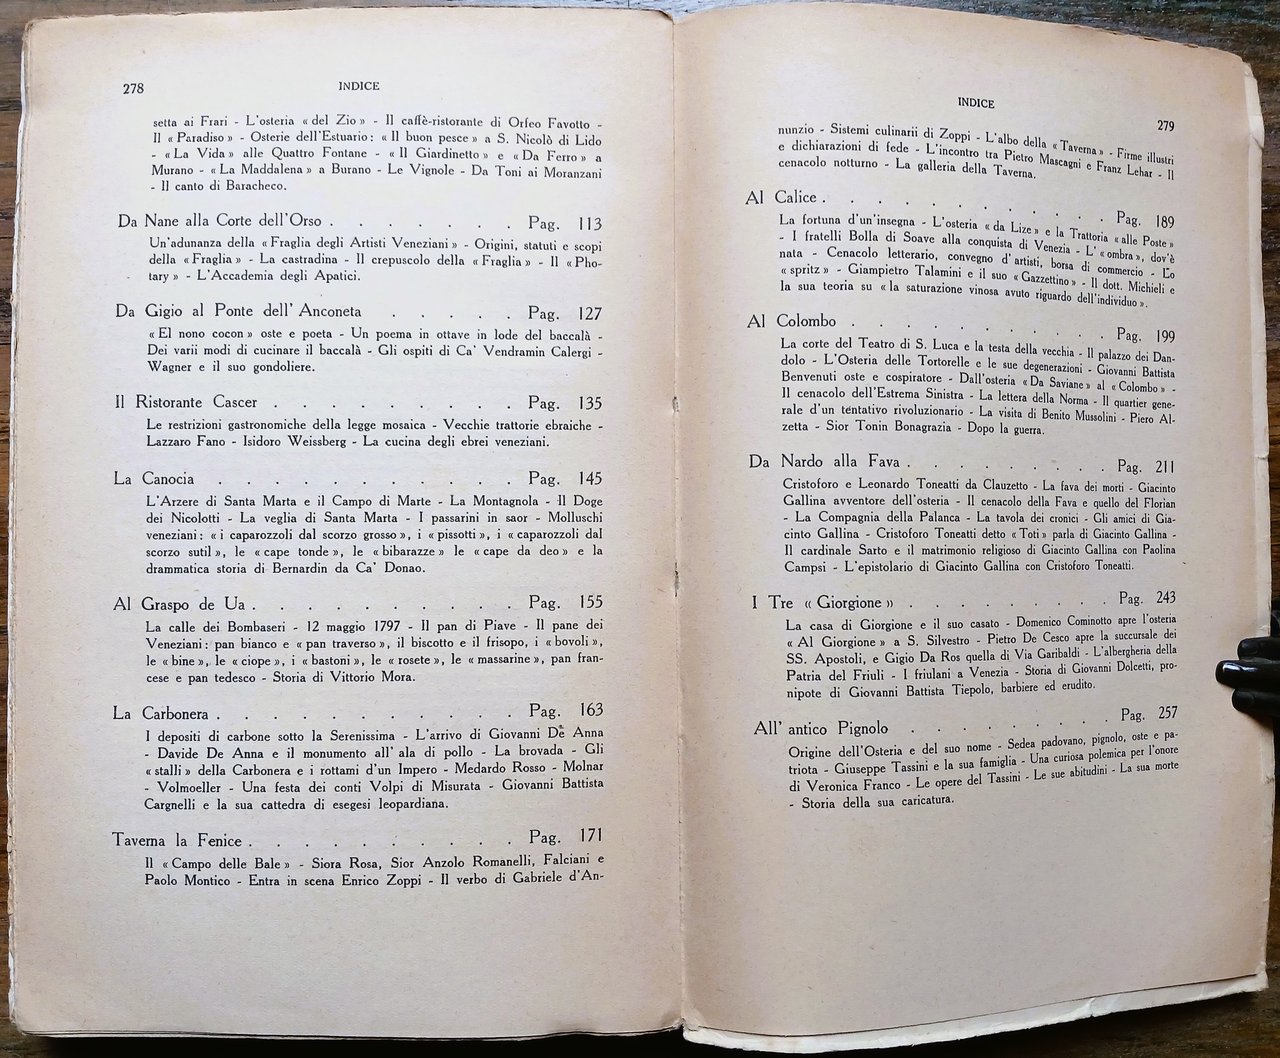 278
INDICE
setta ai Frari - L'osteria « del Zio » - Il caffè-ristorante di Orfeo Favotto -
Il « Paradiso » - Osterie dell'Estuario: « Il buon pesce » a S. Nicolò di Lido
- « La Vida » alle Quattro Fontane - « Il Giardinetto » e « Da Ferro » a
Murano - « La Maddalena » a Burano - Le Vignole - Da Toni ai Moranzani
- Il canto di Baracheco.
Da Nane alla Corte dell'Orso . . . . . . . . Pag. 113
Un'adunanza della « Fraglia degli Artisti Veneziani » - Origini, statuti e scopi
della « Fraglia » - La castradina - Il crepuscolo della « Fraglia » - Il « Pho-
tary » - L'Accademia degli Apatici.
Da Gigio al Ponte dell'Anconeta . . . . . Pag. 127
« El nono cocon » oste e poeta - Un poema in ottave in lode del baccalà -
Dei varii modi di cucinare il baccalà - Gli ospiti di Ca' Vendramin Calergi -
Wagner e il suo gondoliere.
Il Ristorante Cascer . . . . . . . . . Pag. 135
Le restrizioni gastronomiche della legge mosaica - Vecchie trattorie ebraiche -
Lazzaro Fano - Isidoro Weissberg - La cucina degli ebrei veneziani.
La Canocia . . . . . . . . . . . Pag. 145
L'Arzere di Santa Marta e il Campo di Marte - La Montagnola - Il Doge
dei Nicolotti - La veglia di Santa Marta - I passarini in saor - Molluschi
veneziani: « i caparozzoli dal scorzo grosso », i « pissotti », i « caparozzoli dal
scorzo sutil », le « cape tonde », le « bibarazze » le « cape da deo » e la
drammatica storia di Bernardin da Ca' Donao.
Al Graspo de Ua . . . . . . . . . . Pag. 155
La calle dei Bombaseri - 12 maggio 1797 - Il pan di Piave - Il pane dei
Veneziani: pan bianco e « pan traverso », il biscotto e il frisopo, i « bovoli »,
le « bine », le « ciope », i « bastoni », le « rosete », le « massarine », pan fran-
cese e pan tedesco - Storia di Vittorio Mora.
La Carbonera . . . . . . . . . . . Pag. 163
I depositi di carbone sotto la Serenissima - L'arrivo di Giovanni De Anna
- Davide De Anna e il monumento all'ala di pollo - La brovada - Gli
« stalli » della Carbonera e i rottami d'un Impero - Medardo Rosso - Molnar
- Volmoeller - Una festa dei conti Volpi di Misurata - Giovanni Battista
Cargnelli e la sua cattedra di esegesi leopardiana.
Taverna la Fenice . . . . . . . . . . Pag. 171
Il « Campo delle Bale » - Siora Rosa, Sior Anzolo Romanelli, Falciani e
Paolo Montico - Entra in scena Enrico Zoppi - Il verbo di Gabriele d'An-
INDICE
279
nunzio - Sistemi culinarii di Zoppi - L'albo della « Taverna » - Firme illustri
e dichiarazioni di fede - L'incontro tra Pietro Mascagni e Franz Lehar - Il
cenacolo notturno - La galleria della Taverna.
Al Calice . . . . . . . . . . . . Pag. 189
La fortuna d'un'insegna - L'osteria « da Lize » e la Trattoria « alle Poste »
- I fratelli Bolla di Soave alla conquista di Venezia - L'« ombra », dov'è
nata - Cenacolo letterario, convegno d'artisti, borsa di commercio - Lo
« spritz » - Giampietro Talamini e il suo « Gazzettino » - Il dott. Michieli e
la sua teoria su « la saturazione vinosa avuto riguardo dell'individuo ».
Al Colombo . . . . . . . . . . . Pag. 199
La corte del Teatro di S. Luca e la testa della vecchia - Il palazzo dei Dan-
dolo - L'Osteria delle Tortorelle e le sue degenerazioni - Giovanni Battista
Benvenuti oste e cospiratore - Dall'osteria « Da Saviane » al « Colombo » -
Il cenacolo dell'Estrema Sinistra - La lettera della Norma - Il quartier gene-
rale d'un tentativo rivoluzionario - La visita di Benito Mussolini - Piero Al-
zetta - Sior Tonin Bonagrazia - Dopo la guerra.
Da Nardo alla Fava . . . . . . . . . Pag. 211
Cristoforo e Leonardo Toneatti da Clauzetto - La fava dei morti - Giacinto
Gallina avventore dell'osteria - Il cenacolo della Fava e quello del Florian
- La Compagnia della Palanca - La tavola dei cronici - Gli amici di Gia-
cinto Gallina - Cristoforo Toneatti detto « Toti » parla di Giacinto Gallina -
Il cardinale Sarto e il matrimonio religioso di Giacinto Gallina con Paolina
Campsi - L'epistolario di Giacinto Gallina con Cristoforo Toneatti.
I Tre « Giorgione » . . . . . . . . . Pag. 243
La casa di Giorgione e il suo casato - Domenico Cominotto apre l'osteria
« Al Giorgione » a S. Silvestro - Pietro De Cesco apre la succursale dei
SS. Apostoli, e Gigio Da Ros quella di Via Garibaldi - L'albergheria della
Patria del Friuli - I friulani a Venezia - Storia di Giovanni Dolcetti, pro-
nipote di Giovanni Battista Tiepolo, barbiere ed erudito.
All'antico Pignolo . . . . . . . . . Pag. 257
Origine dell'Osteria e del suo nome - Sedea padovano, pignolo, oste e pa-
triota - Giuseppe Tassini e la sua famiglia - Una curiosa polemica per l'onore
di Veronica Franco - Le opere del Tassini - Le sue abitudini - La sua morte
- Storia della sua caricatura.